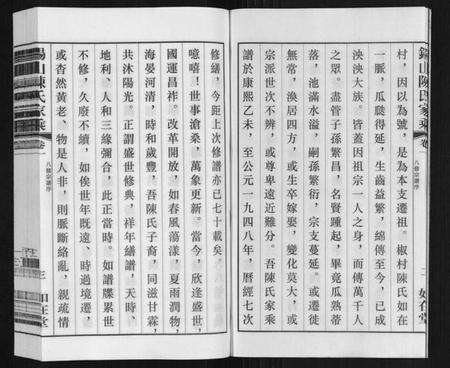 錫山陳氏家乘
卷
八修宗譜序
二
村，因以為號，是為本支遷祖。椒村陳氏如在
一脈，瓜瓞得延，生齒益繁，綿傳至今，已成
泱泱大族。皆蓋因祖宗一人之身，而傳萬千人
之眾。盡管子孫繁昌，名賢踵起，畢竟瓜熟蒂
落，池滿水溢，嗣孫繁衍，宗支蔓延。或遷徙
無常，渙居四方，或生卒嫁娶，變化莫大，或
宗派世次不辨，或尊卑遠近難分。吾陳氏家乘
譜於康熙乙未，至公元一九四八年，曆經七次
修繕，今距上次修譜亦已七十載矣。
噫嘻！世事滄桑，萬象更新。當今，欣逢盛世，
國運昌祚。改革開放，如春風蕩漾，夏雨潤物，
海晏河清，時和歲豐，吾陳氏子裔，同滋甘霖，
共沐陽光。正謂盛世修典，祥年繕譜，天時、
地利、人和三緣彌合，此正當時。如譜牒累世
不修，久廢不續，如俟世年既遠，時過境遷，
或杳然黃老，物是人非，則脈斷絡亂，親疏情
錫山陳氏家乘
卷
八修宗譜序
三